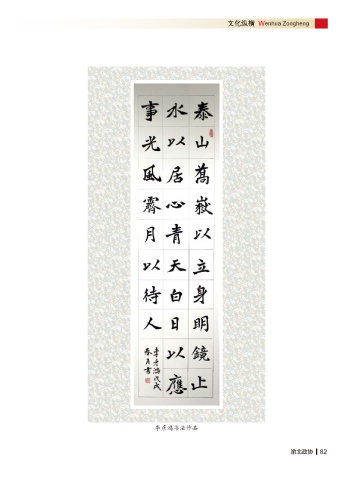 文化纵横 Wenhua Zongheng
泰山喬嶽以立身明鏡止
水以居心青天白日以應
事光風霽月以待人
李彦鴻戊戌
春月書
李彦鸿书法作品
渝北政协 82